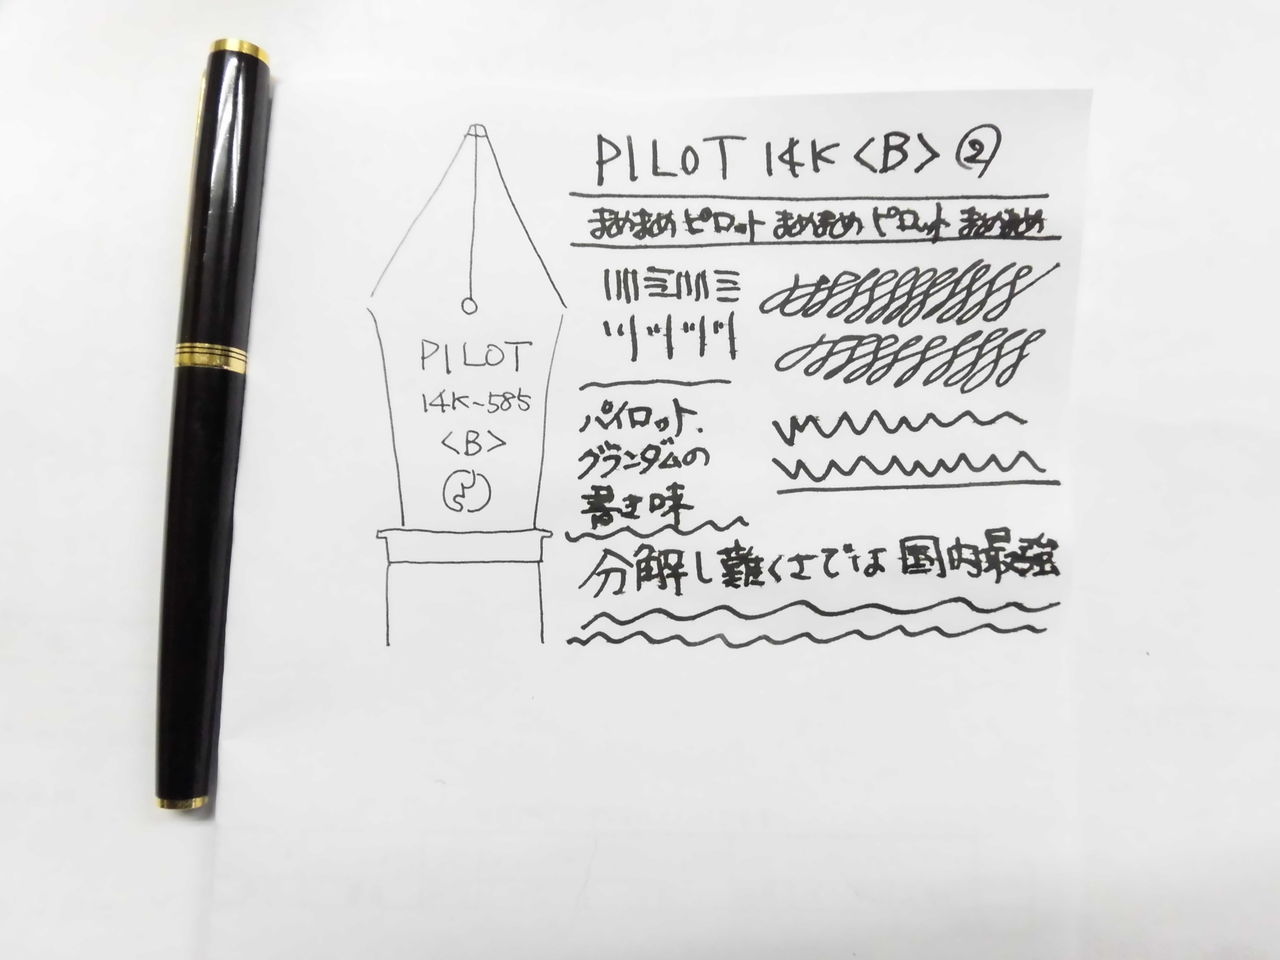 PILOT 14K <B> ②
まめまめ ピロット まめまめ ピロット まめまめ
PILOT
14K~585
<B>
パイロット.
グランダムの
書き味
分解し難くさでは 国内最強